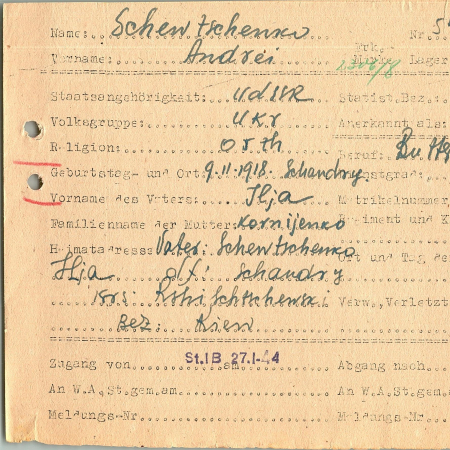 Name: Schewtschenko Nr. 5
Vorname: Andrei Erk. Marke Lager
Staatsangehörigkeit: UdSSR Statist.Bez.:
Volksgruppe: Ukr Anerkannt als:
Religion: orth Beruf:
Geburtstag- und Ort 9.11.1918. Schandry
Vorname des Vaters: Ilja Matrikelnummer
Familienname der Mutter: Kornijenko
Heimatadresse Vater: Schewtschenko Ort und Tag de
Ilja Schandry
Verw., Verletzt
Bez: Kiew
St.IB 27.1.44
Zugang von am Abgang nach
An W.A.St.gem.am An W.A.St.gem.
Meldungs-Nr. Meldungs-Nr.